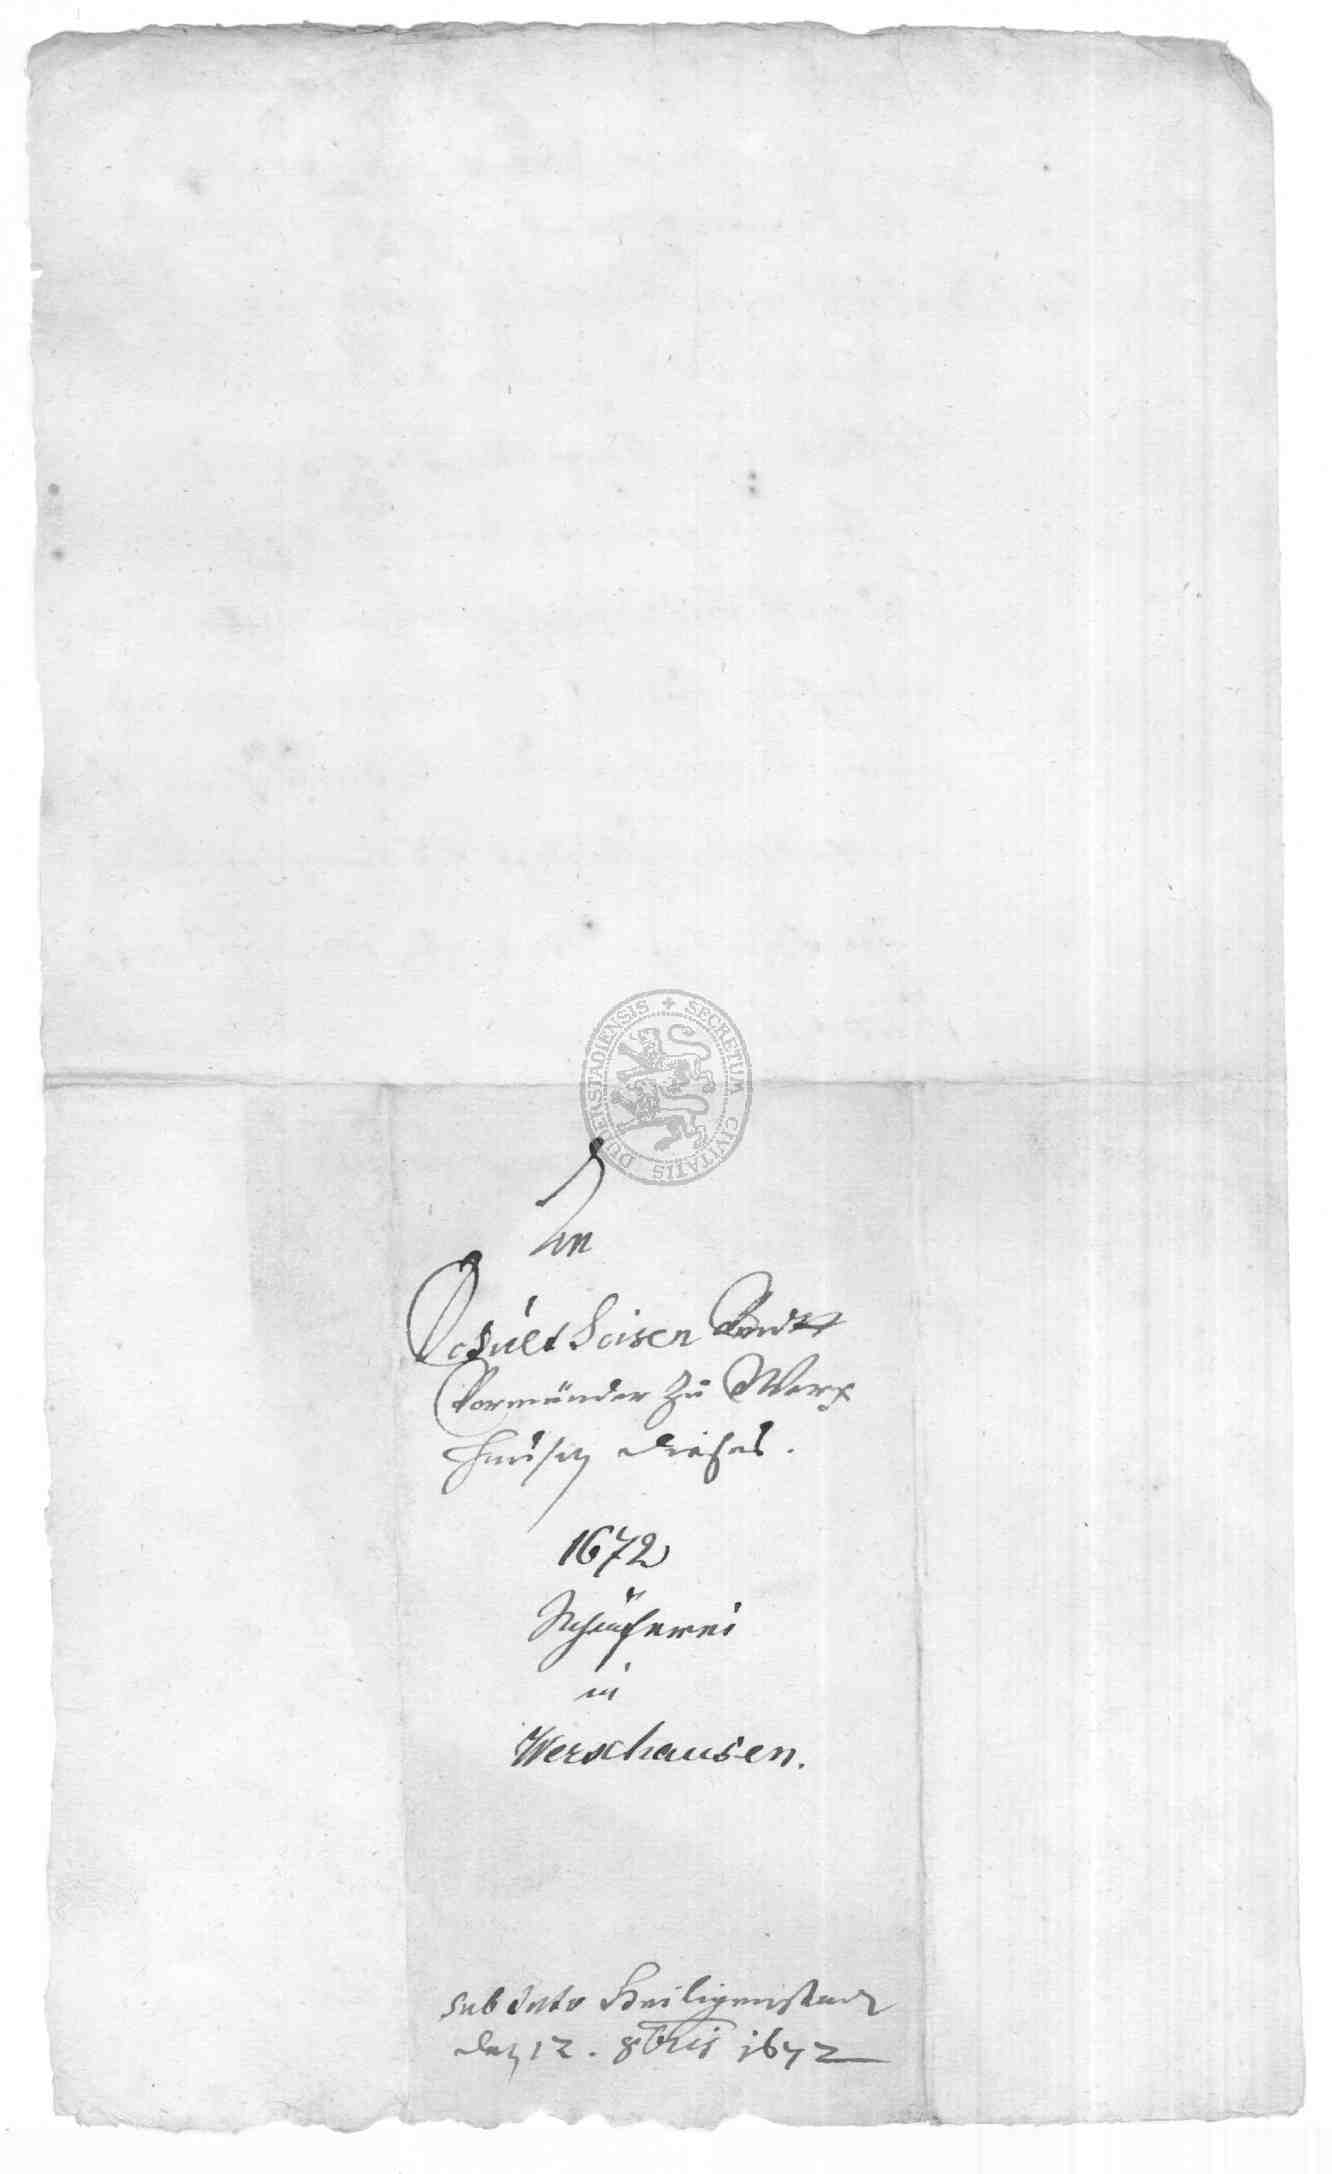 SECRETUM CIVITATIS DUDERSTADIENSIS
An
Schultheisen Undt
Vormünder zu Werx
hausen dieses.
1672
Schäferei
in
Werxhausen.
sub dato Heiligenstadt
den 12. 8bris 1672